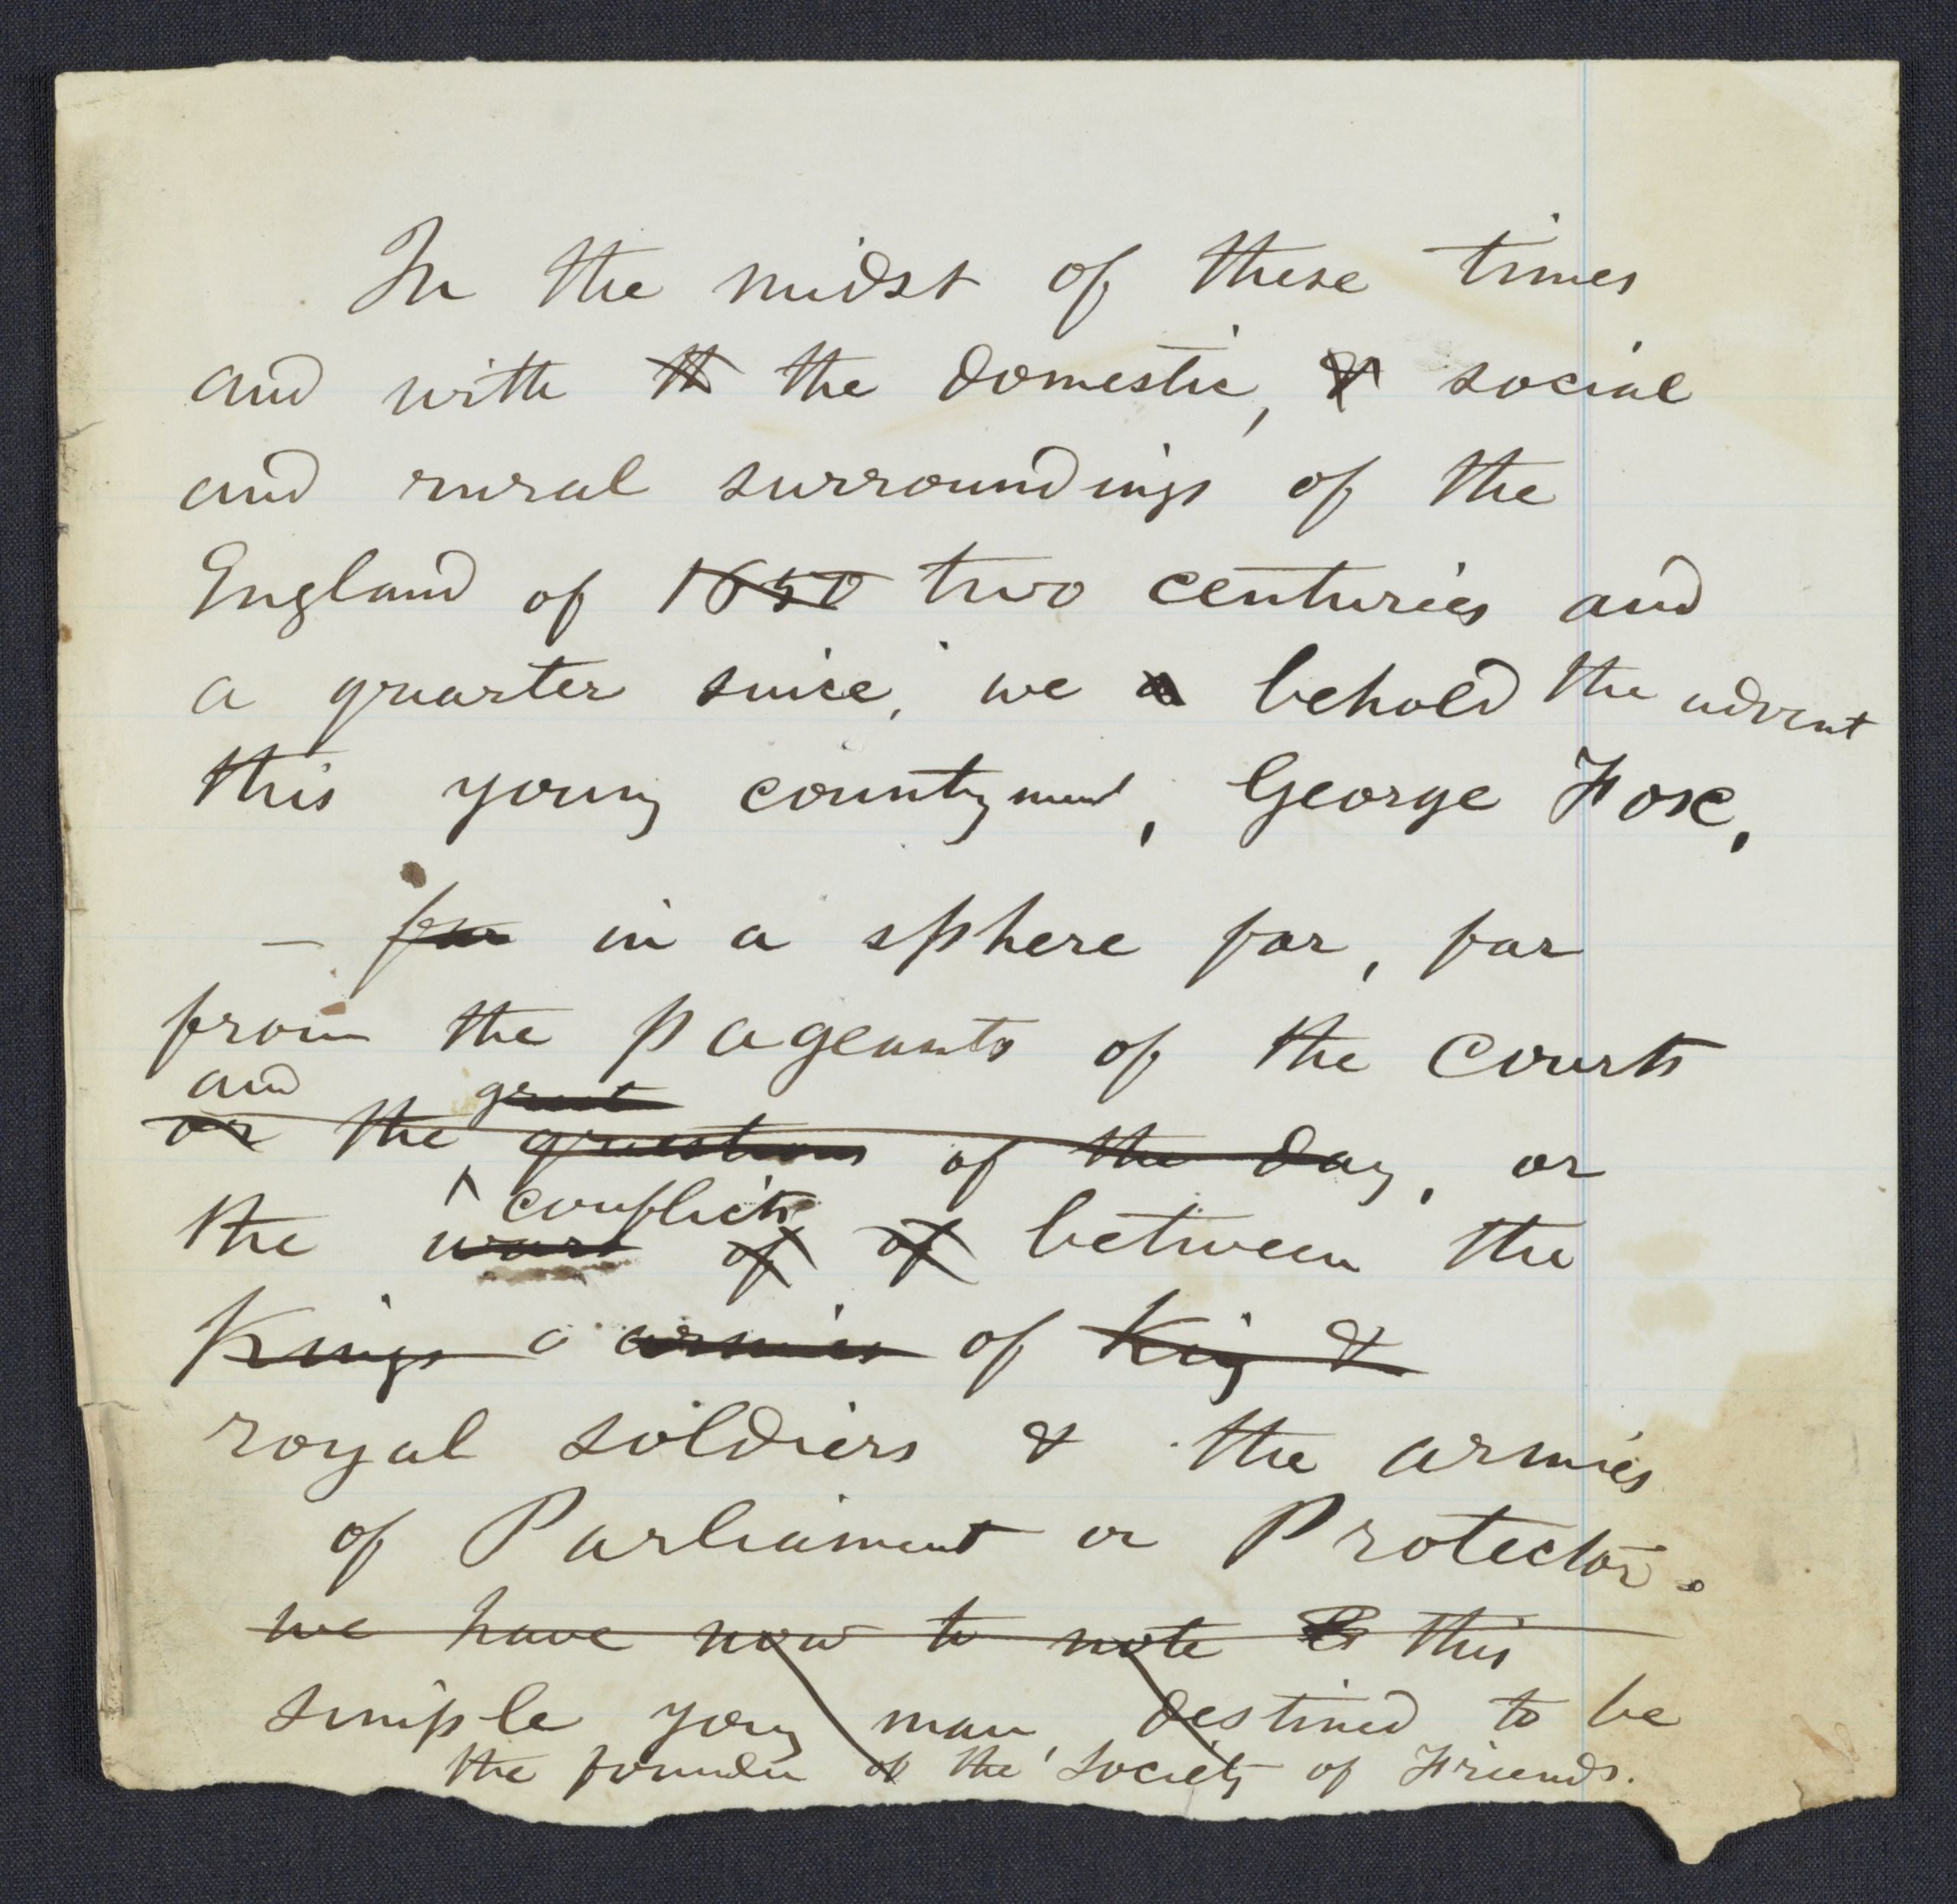 In the midst of these times
and with th the domestic, & social
and rural surroundings of the
England of 1650 two centuries and
a quarter since, we a behold the advent
this young countryman, George Fox,
— far in a sphere far, far
from the pageants of the courts
and great
or the questions of the day, or
conflicts
the wars of of between the
Kings armies of King &
royal soldiers & the armies
of Parliament or Protector.
we have now to note this
simple young man, destined to be
the founder of the Society of Friends.